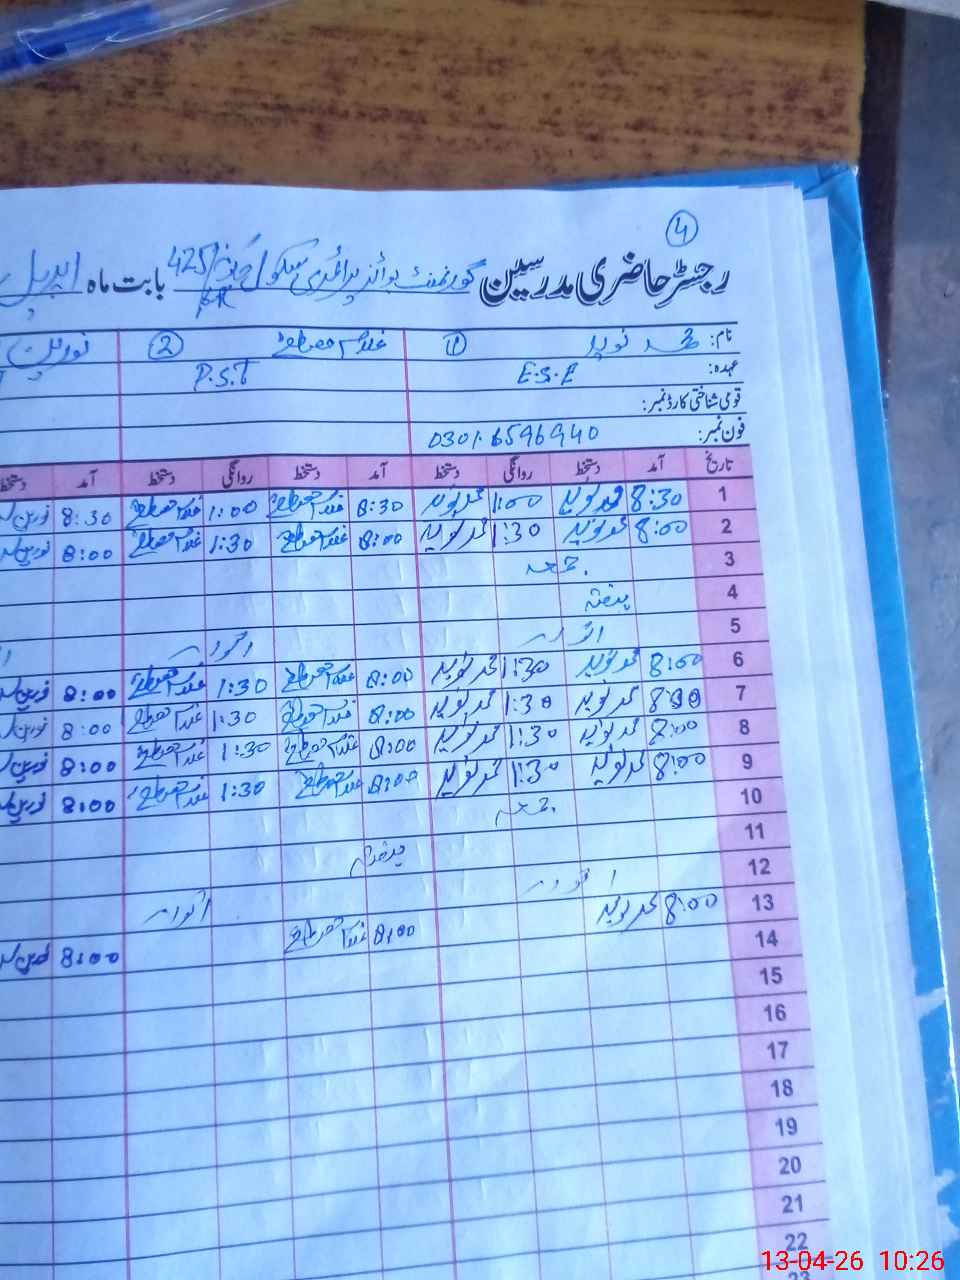 4
رجسٹر حاضری مدرسین گورنمنٹ بوائز پرائمری سکول 425 بابت ماہ اپریل
نام: محمد نوید 1 غلام مصطفیٰ 2
عہدہ: E.S.E P.S.T
قومی شناختی کارڈ نمبر:
فون نمبر: 0301-6596940
تاریخ آمد دستخط روانگی دستخط آمد دستخط روانگی دستخط آمد دستخط
1 8:30 محمد نوید 1:00 محمد نوید 8:30 غلام مصطفیٰ 1:00 غلام مصطفیٰ 8:30 نورین
2 8:00 محمد نوید 1:30 محمد نوید 8:00 غلام مصطفیٰ 1:30 غلام مصطفیٰ 8:00 نورین
3 جمعہ
4 ہفتہ
5 اتوار اتوار
6 8:00 محمد نوید 1:30 محمد نوید 8:00 غلام مصطفیٰ 1:30 غلام مصطفیٰ 8:00 نورین
7 8:00 محمد نوید 1:30 محمد نوید 8:00 غلام مصطفیٰ 1:30 غلام مصطفیٰ 8:00 نورین
8 8:00 محمد نوید 1:30 محمد نوید 8:00 غلام مصطفیٰ 1:30 غلام مصطفیٰ 8:00 نورین
9 8:00 محمد نوید 1:30 محمد نوید 8:00 غلام مصطفیٰ 1:30 غلام مصطفیٰ 8:00 نورین
10 جمعہ
11 ہفتہ
12 اتوار اتوار
13 8:00 محمد نوید 8:00 غلام مصطفیٰ 8:00 نورین
14
15
16
17
18
19
20
21
22
23
13-04-26 10:26